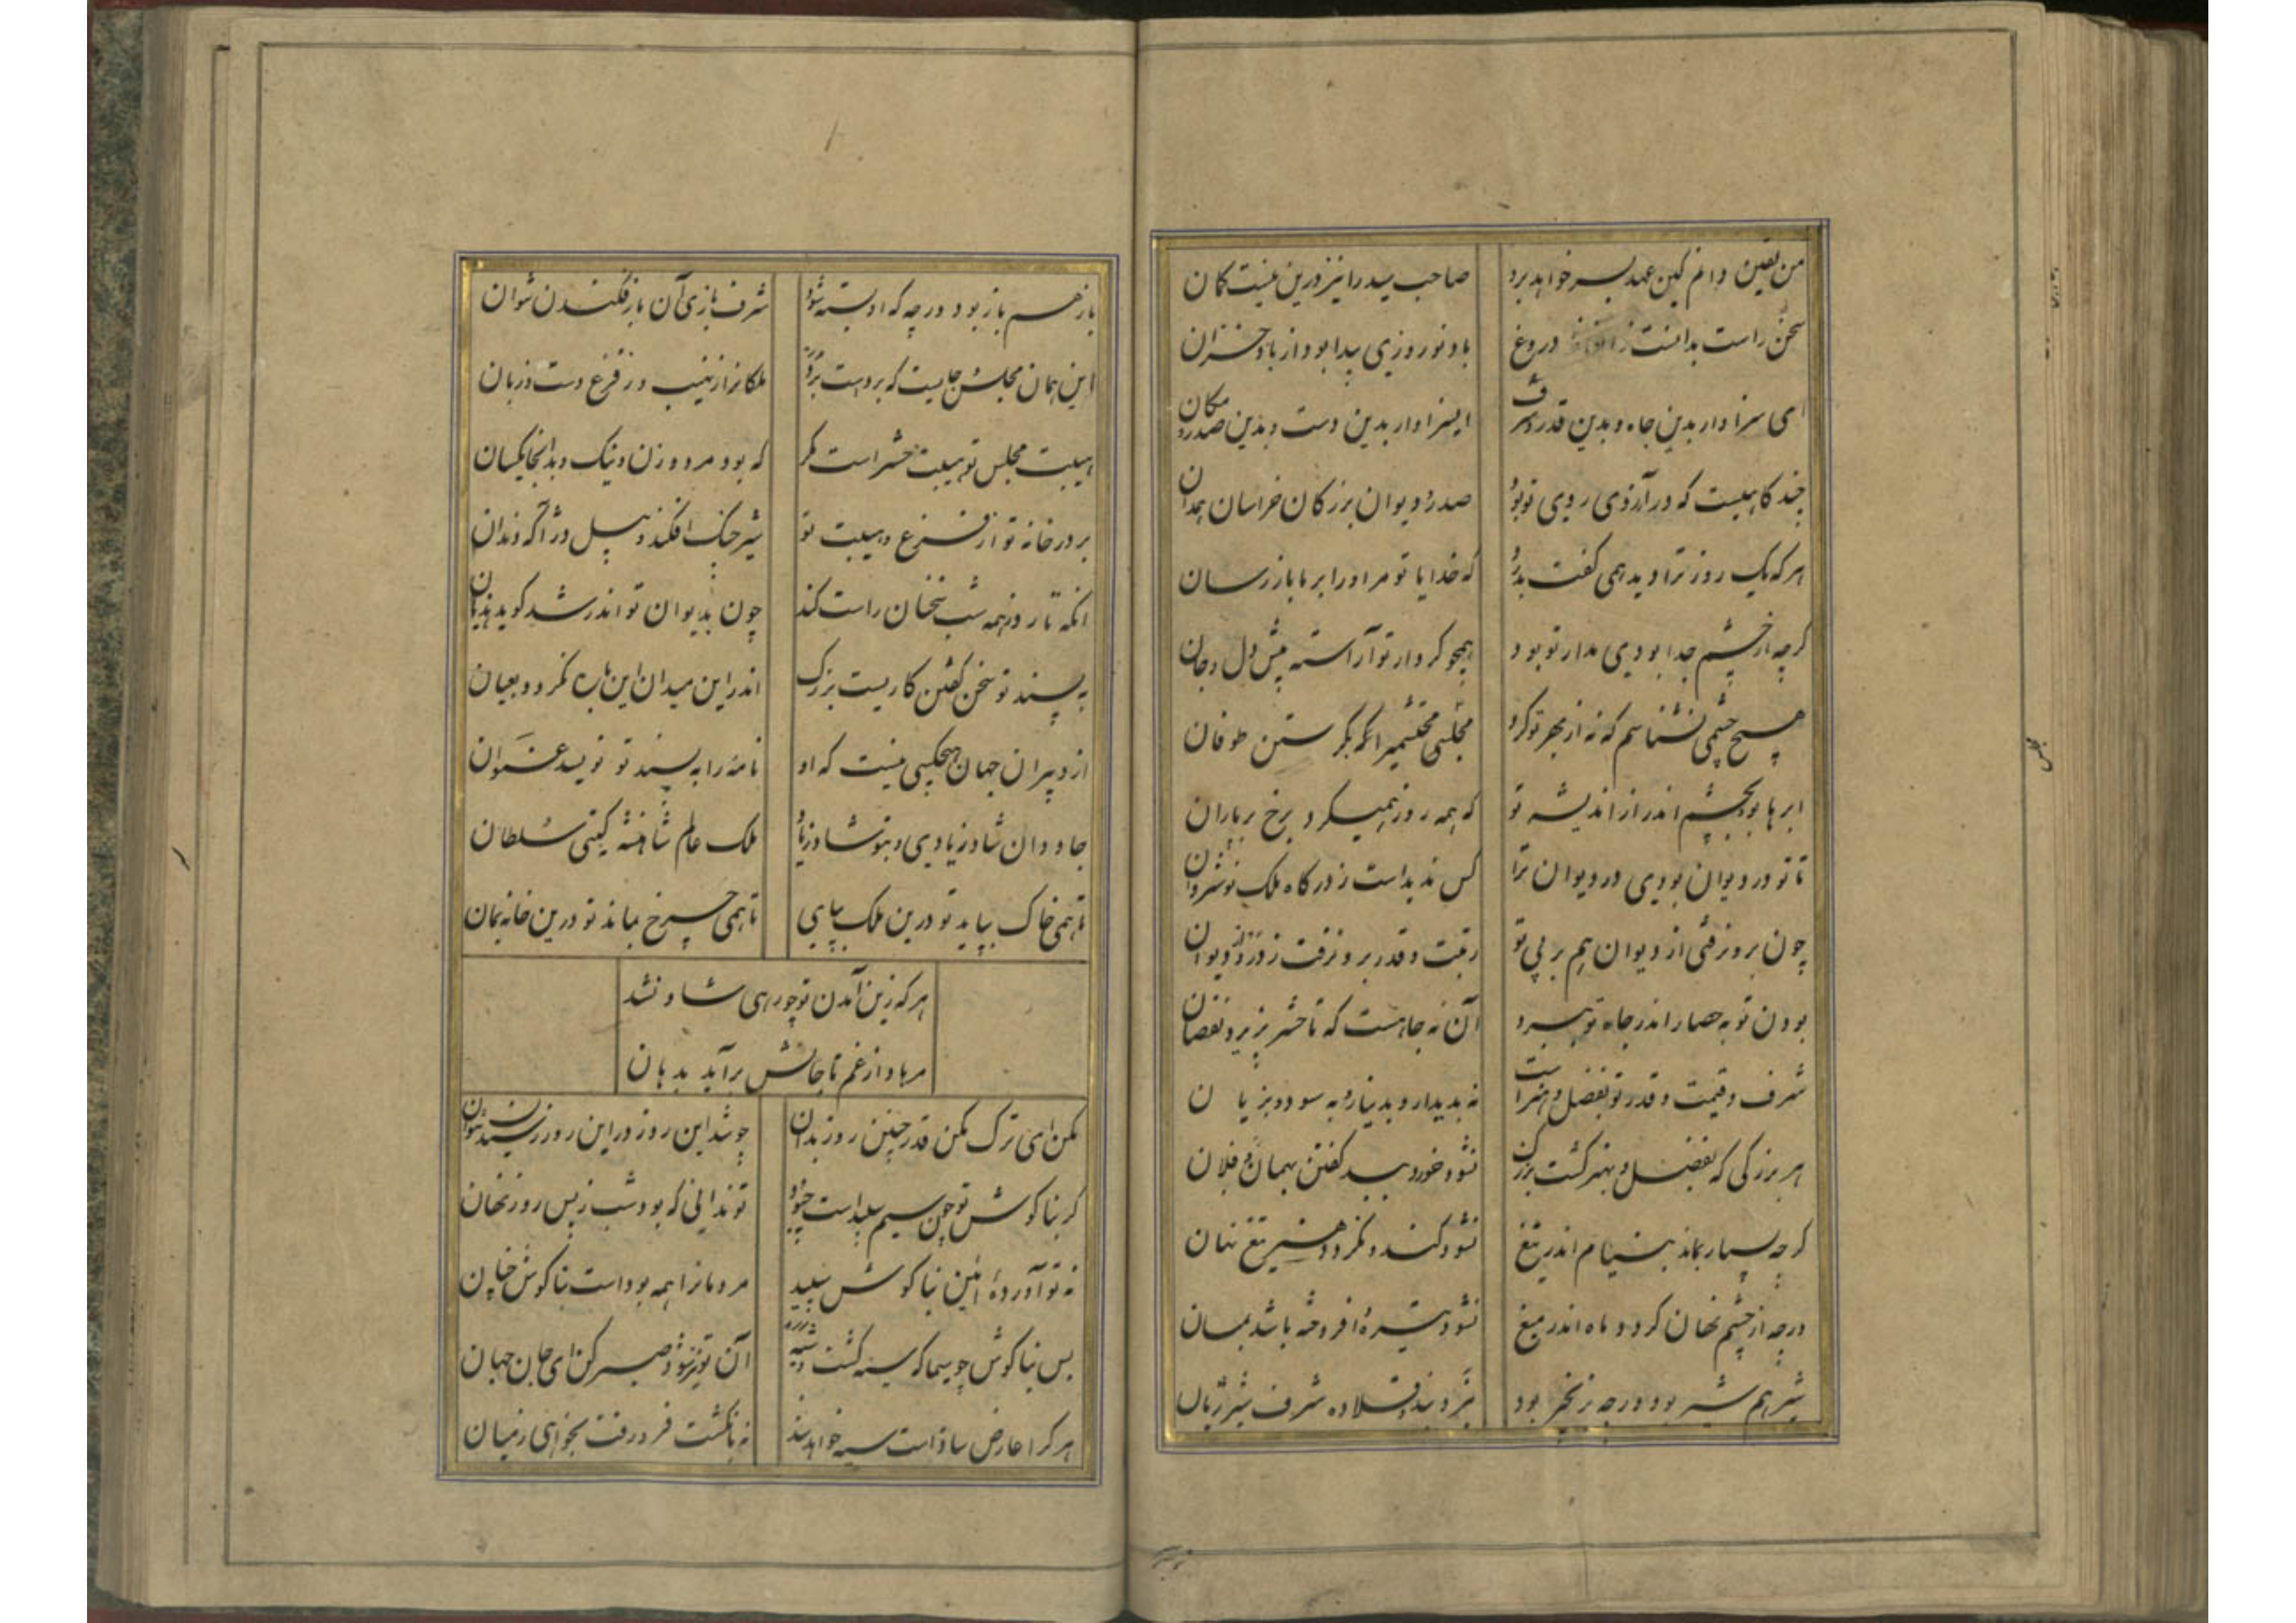 من یقین دانم کین عهد بسر خواهد برد صاحب سید را نیز درین نیست کمان
سخن راست بدانست ز دروغ باد نوروزی پیدا بود از باد خزان
ای سزاوار بدین جاه و بدین قدر و شرف ای سزاوار بدین دست و بدین صدر و مکان
چند کاهیست که در آرزوی روی تو بود صدر دیوان بزرکان خراسان همدان
هر که یک روز ترا دید همی کفت بدرد که خدایا تو مر او را بر ما باز رسان
کرچه از چشم جدا بودی دیدار تو بود همچو کردار تو آراسته پیش دل و جان
هیچ چشمی نشناسم که نه از بهر تو کرد مجلسی کریستن طوفان
ابرها بود بچشم اندر از اندیشه تو که همه روز همیکرد برخ بر باران
تا تو در دیوان بودی در دیوان ترا کس ندید است ز درکاه ملک نوشروان
چون برون رفتی از دیوان هم بر پی تو رتبت و قدر برون رفت ز در دیوان
بودن تو به حصار اندر جاه تو نبرد آن نه جاهست که تا حشر پزیرد نقصان
شرف و قیمت و قدر تو بفضل و هنر است نه بدیدار و بدینار و به سود و بزیان
هر بزرکی که بفضل و بهنر کشت بزرک نشود خورد ببد کفتن بهمان و فلان
کرچه بسیار بماند بنیام اندر تیغ نشود کند و نکردد هنر تیغ نهان
ورچه از چشم نهان کردد ماه اندر میغ نشود تیره و افروخته باشد بمیان
شیر هم شیر بود ورچه بزنجیر بود نبرد بند و قلاده شرف شیر ژیان
باز هم باز بود ورچه که او بسته شود شرف بازی آن باز فکندن نتوان
این همان مجلس جایست که بر دست برد ملکانرا ز نهیب و ز فزع دست و زبان
هیبت مجلس تو هیبت حشر است مکر که بود مرد و زن و نیک و بد آنجا یکسان
بر در خانه تو از فزع و هیبت تو شیر چنک افکند و پیل دژ آکه دندان
آنکه تا روز همه شب سخنان راست کند چون بدیوان تو اندر شد کوید هذیان
به پسند تو سخن کفتن کاریست بزرک اندر این میدان این نکردد بعیان
از دبیران جهان هیچکسی نیست که او نامه را به پسند تو نویسد عنوان
جاودان شاد زیادی و بتو شاد زیاد ملک عالم شاهنشه کیتی سلطان
تا همی خاک بپاید تو درین ملک بپای تا همی چرخ بماند تو درین خانه بمان
هر که زین آمدن تو چو رهی شاد نشد
مرهاد از غم تا جانش برآید بدهان
مکن ای ترک مکن قدر چنین روز بدان چو شد این روز در این روز رسیدن نتوان
کر بناکوش تو چون سیم سپید است چه سود تو ندانی که بود شب ز پس روز نهان
نه تو آوردهٔ آئین بناکوش سپید مردمانرا همه بود است بناکوش چنان
بس بناکوش چو سیما که سیه کشت آن تو نیز شود صبر کن ای جان جهان
هر کرا عارض ساده است سیه خواهد شد نه بانکشت فرو رفت بخواهی ز میان